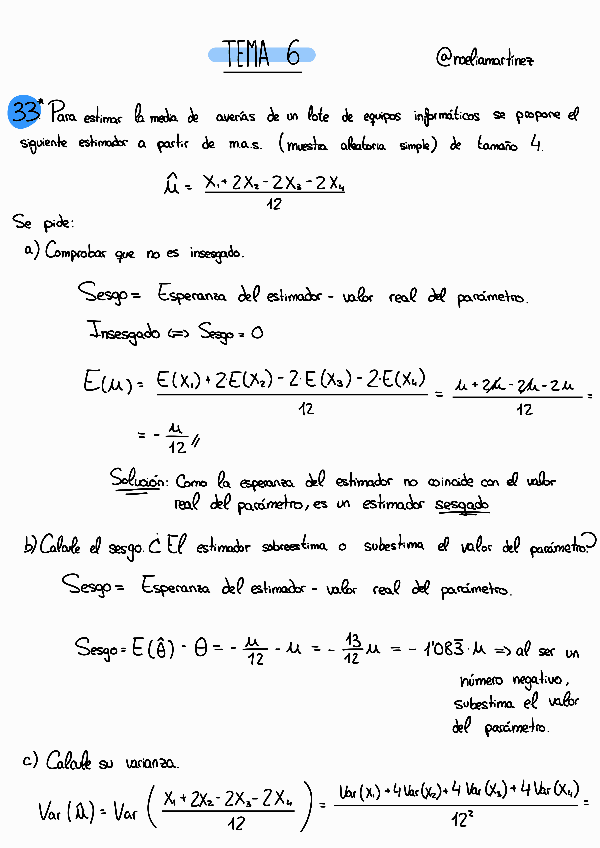 TEMA 6
@noeliamartinez
33* Para estimar la media de averías de un lote de equipos informáticos se propone el
siguiente estimador a partir de m.a.s. (muestra aleatoria simple) de tamaño 4.
û = X₁ + 2X₂ - 2X₃ - 2X₄ / 12
Se pide:
a) Comprobar que no es insesgado.
Sesgo = Esperanza del estimador - valor real del parámetro.
Insesgado ⇔ Sesgo = 0
E(μ) = E(X₁) + 2·E(X₂) - 2·E(X₃) - 2·E(X₄) / 12 = μ + 2μ - 2μ - 2μ / 12 =
= - μ / 12 //
Solución: Como la esperanza del estimador no coincide con el valor
real del parámetro, es un estimador sesgado
b) Calcule el sesgo. ¿El estimador sobreestima o subestima el valor del parámetro?
Sesgo = Esperanza del estimador - valor real del parámetro.
Sesgo = E(θ̂) - θ = - μ/12 - μ = - 13/12 μ = - 1'083̅ · μ ⇒ al ser un
número negativo,
subestima el valor
del parámetro.
c) Calcule su varianza.
Var(û) = Var ( X₁ + 2X₂ - 2X₃ - 2X₄ / 12 ) = Var(X₁) + 4Var(X₂) + 4Var(X₃) + 4Var(X₄) / 12² =